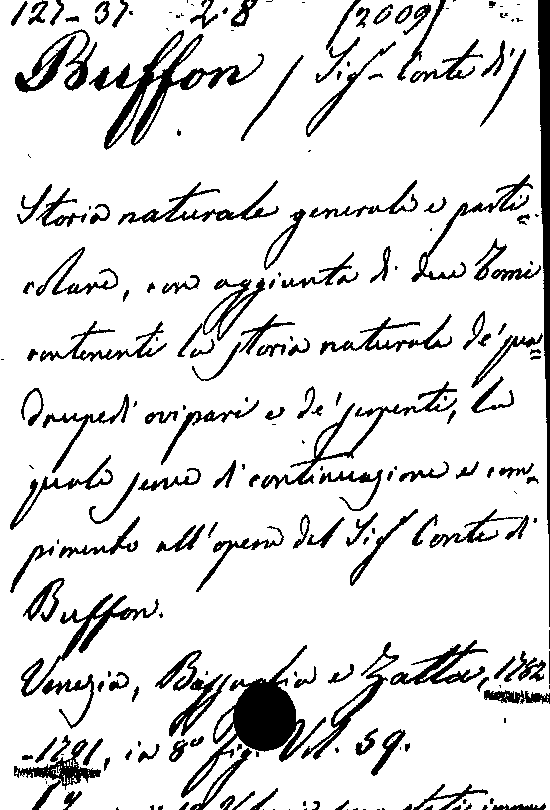 127-37. 2.8 (2009)
Buffon / Sigr. Conte di /
Storia naturale generale e parti=
colare, con aggiunta di due Tomi
contenenti la storia naturale de' qua=
drupedi ovipari e de' serpenti, la
quale serve di continuazione e com-
pimento all'opera del Sigr Conte di
Buffon.
Venezia, Bassaglia e Zatta, 1782
-1791, in 8° fig. Vol. 59.